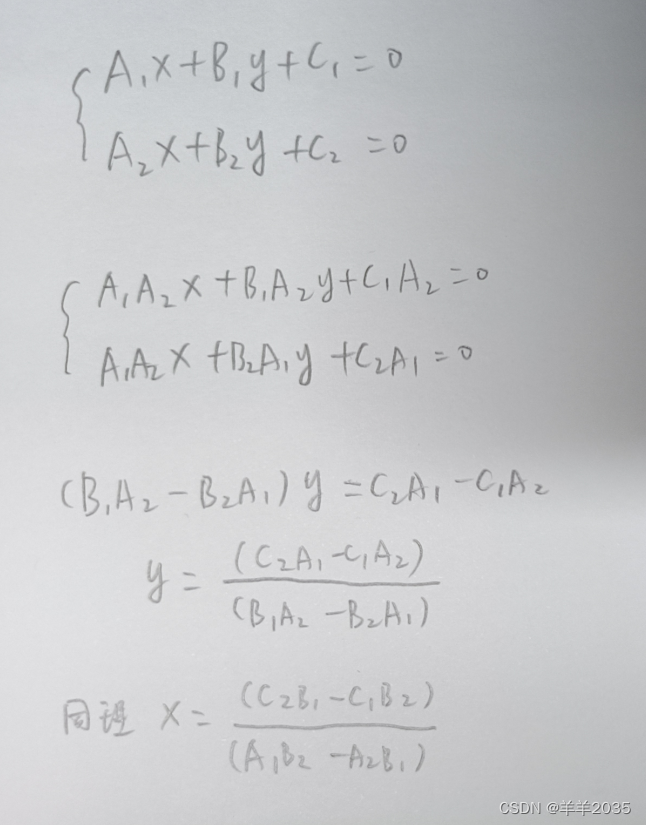 A₁x+B₁y+C₁=0
A₂x+B₂y+C₂=0
A₁A₂x+B₁A₂y+C₁A₂=0
A₁A₂x+B₂A₁y+C₂A₁=0
(B₁A₂-B₂A₁)y=C₂A₁-C₁A₂
y=(C₂A₁-C₁A₂)/(B₁A₂-B₂A₁)
同理 x=(C₂B₁-C₁B₂)/(A₁B₂-A₂B₁)
CSDN @羊羊2035